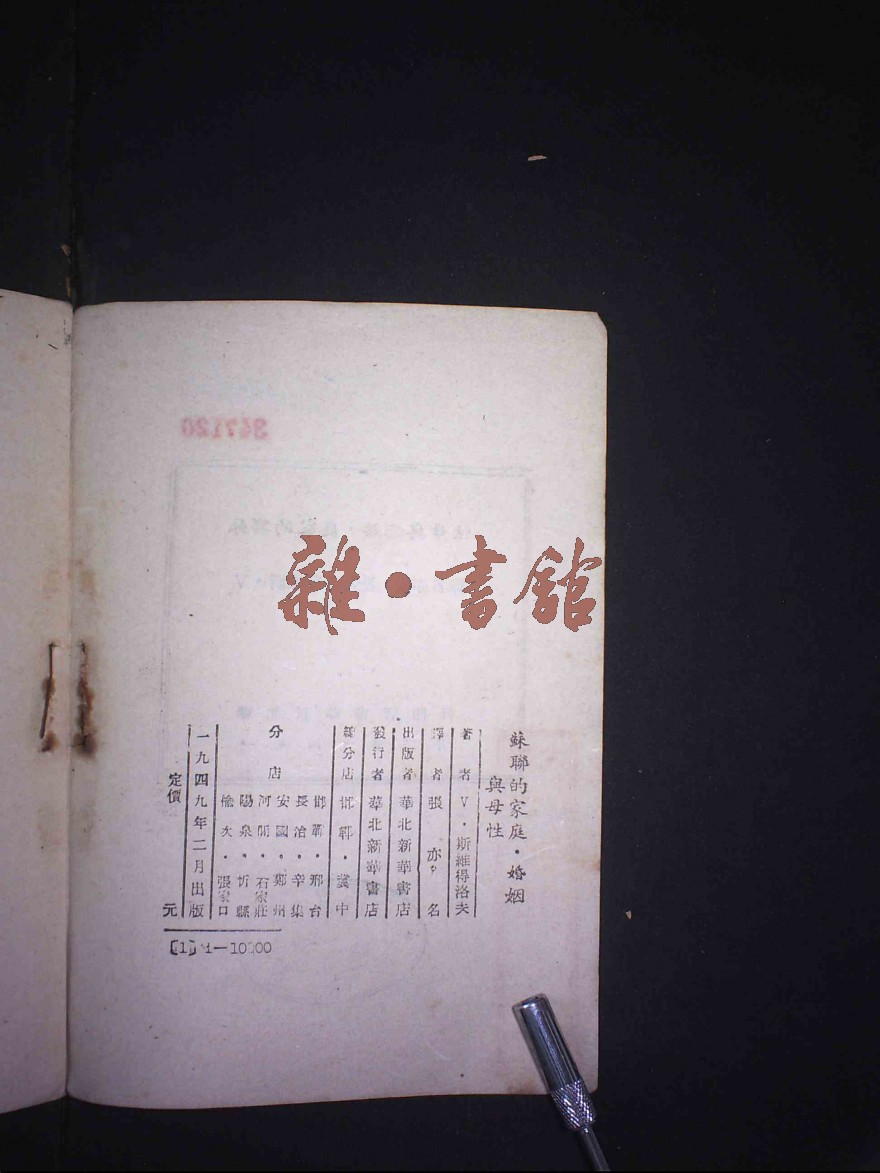 蘇聯的家庭・婚姻
與母性
著者 V・斯維得洛夫
譯者 張亦名
出版者 華北新華書店
發行者 華北新華書店
總分店 邯鄲・冀中
分店 邯鄲・邢台
長治・辛集
安國・鄭州
河間・石家莊
陽泉・忻縣
榆次・張家口
一九四九年二月出版
定價 元
[1] 1—10000
雜・書館
347120